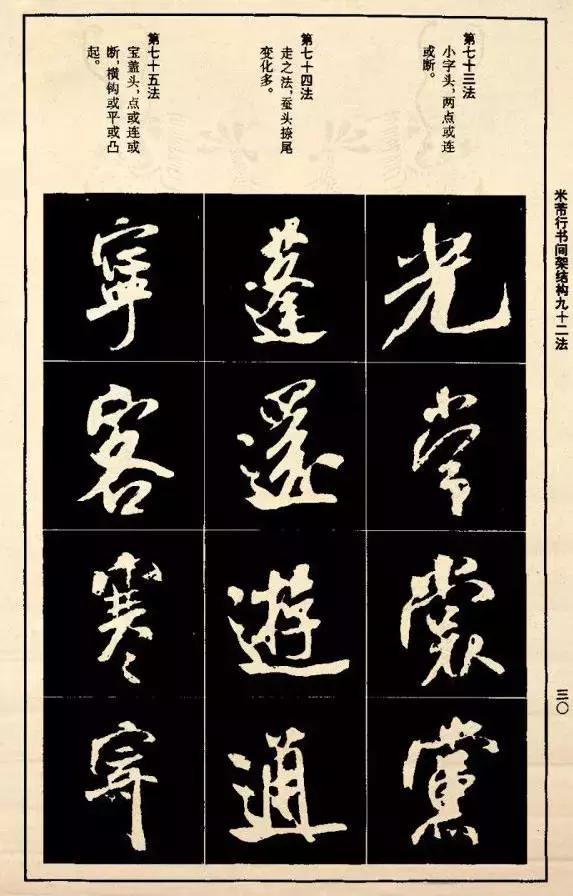 米芾行书间架结构九十二法
三〇
第七十三法
小字头，两点或连
或断。
光
常
裳
黨
第七十四法
走之法，蚕头捺尾
变化多。
蓬
還
遊
通
第七十五法
宝盖头，点或连或
断，横钩或平或凸
起。
寧
客
寒